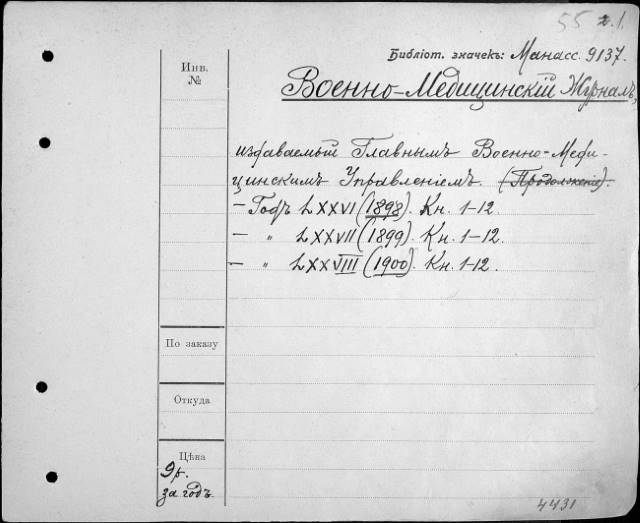 55 л.1.
Библіот. значекъ: Манасс. 9137.
Инв.
№
Военно-Медицинскій Журналъ,
издаваемый Главнымъ Военно-Меди-
цинскимъ Управленіемъ. (Продолженіе).
— Годъ LXXVI (1898). Кн. 1-12.
— „ LXXVII (1899). Кн. 1-12.
— „ LXXVIII (1900). Кн. 1-12.
По заказу
Откуда
Цѣна
9р.
за годъ.
4431